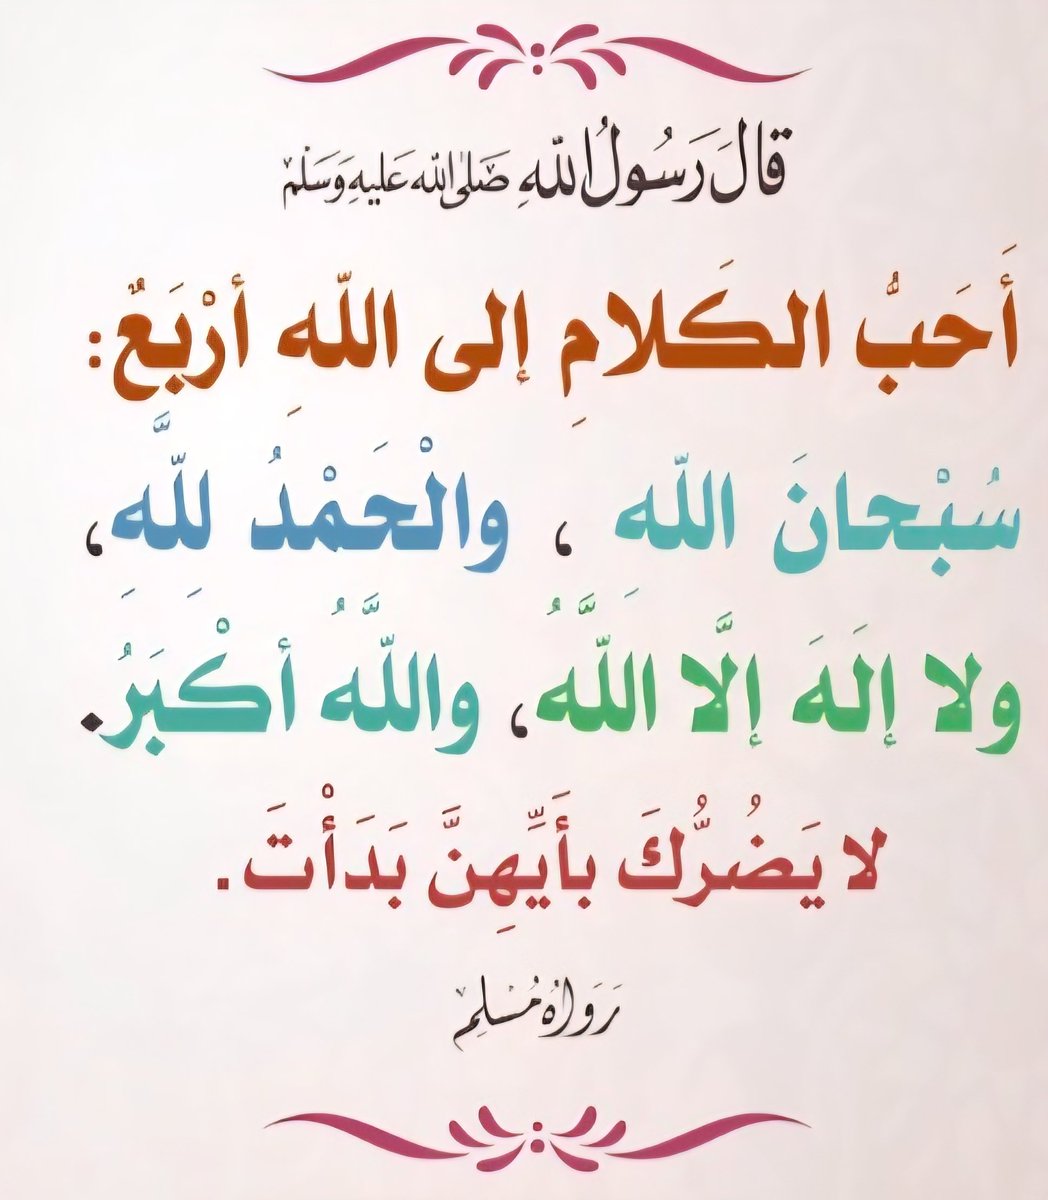 قَالَ رَسُولُ اللّٰهِ صَلَى اللّٰه عَلَيهِ وَسَلَّمْ
أَحَبُّ الكَلامِ إلى اللّهِ أرْبَعٌ:
سُبْحانَ اللّه ، والْحَمْدُ للَّه،
ولا إلَهَ إلَّا اللَّهُ، واللَّهُ أكْبَرُ.
لا يَضُرُّكَ بأَيِّهِنَّ بَدَأْتَ.
رَوَاهُ مُسْلِم